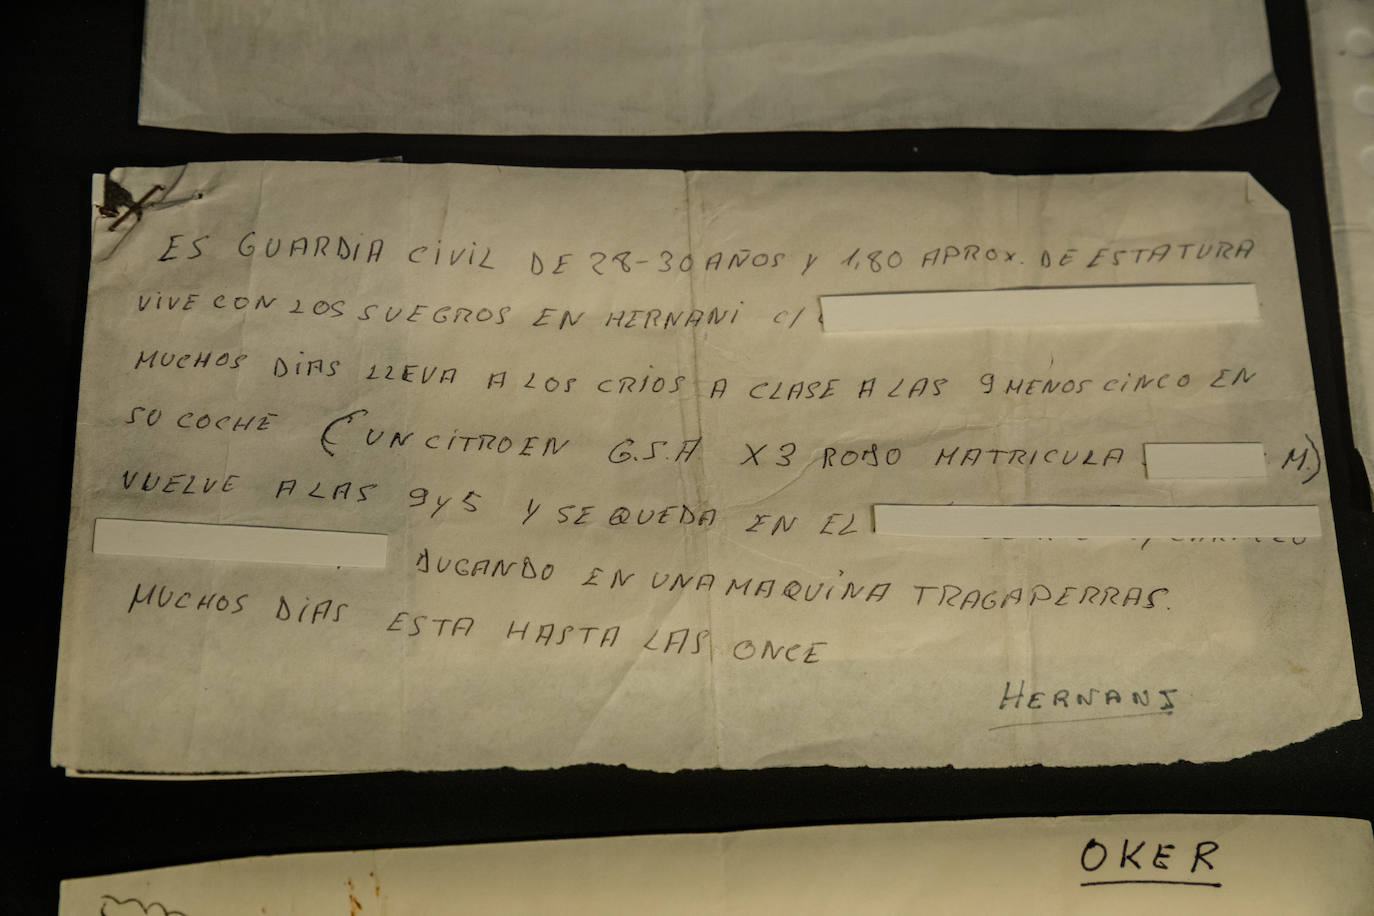 ES GUARDIA CIVIL DE 28-30 AÑOS Y 1,80 APROX. DE ESTATURA
VIVE CON LOS SUEGROS EN HERNANI C/
MUCHOS DIAS LLEVA A LOS CRIOS A CLASE A LAS 9 MENOS CINCO EN
SU COCHE (UN CITROEN G.S.A X3 ROJO MATRICULA M.)
VUELVE A LAS 9 Y 5 Y SE QUEDA EN EL
JUGANDO EN UNA MAQUINA TRAGAPERRAS.
MUCHOS DIAS ESTA HASTA LAS ONCE
HERNANI
OKER